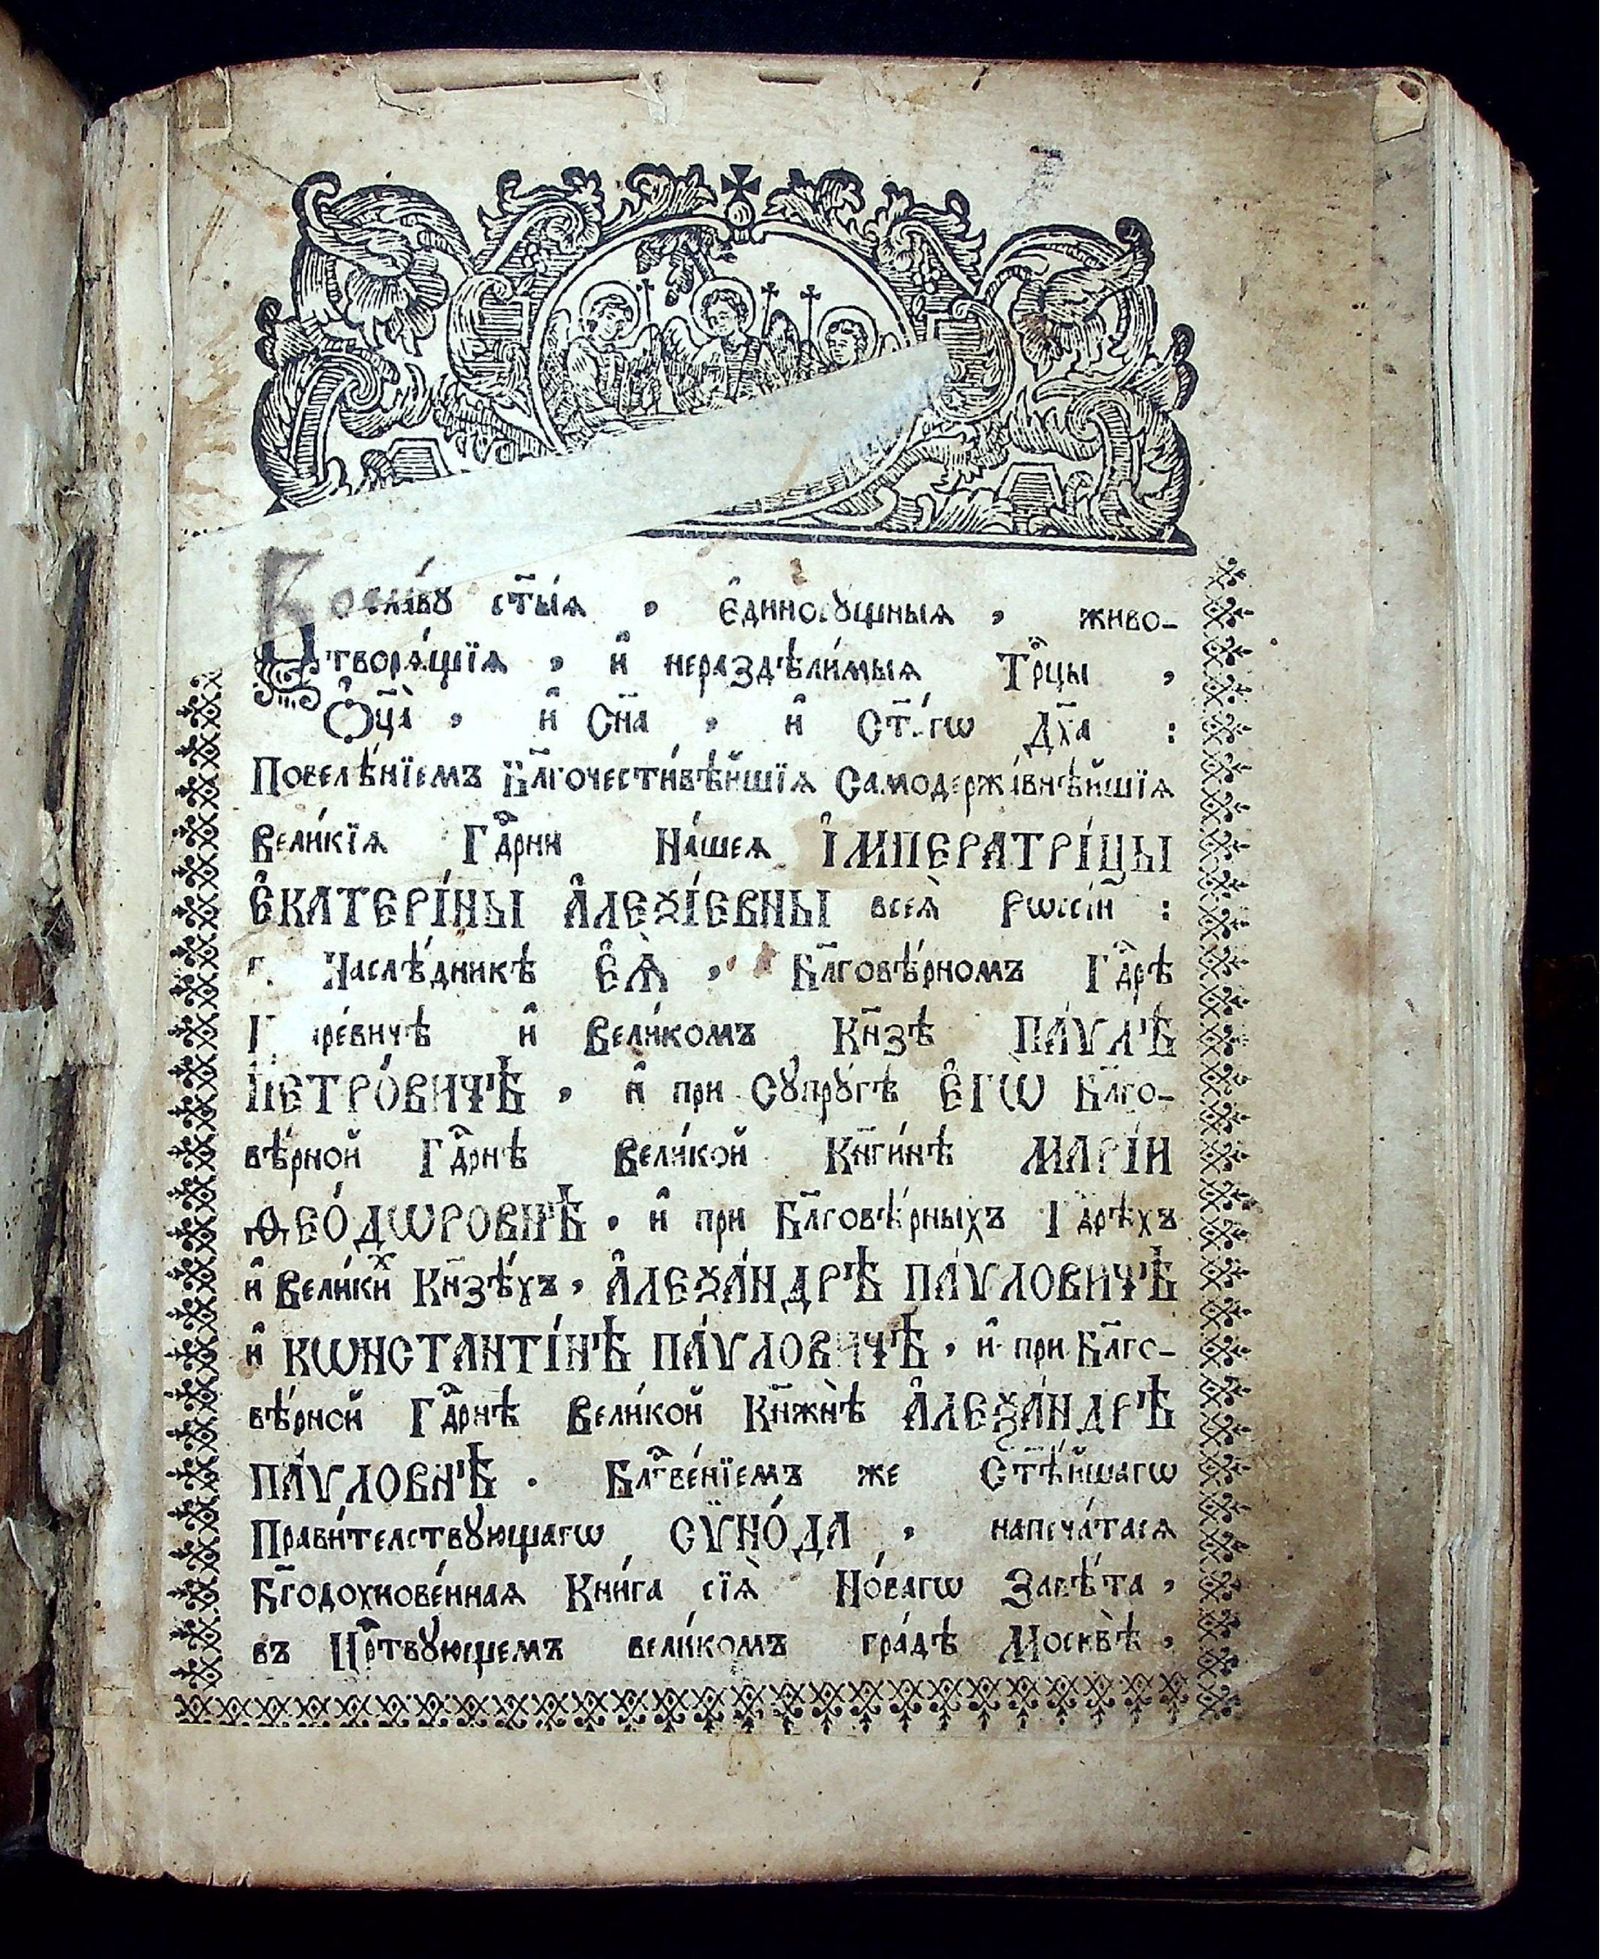 Во славу ст҃ы́ѧ , є҆диносꙋ́щныѧ , живо-
творѧ́щїѧ , и҆ нераздѣли́мыѧ Трⷪ҇цы ,
Ѻ҆ц҃а̀ , и҆ Сн҃а , и҆ Ст҃а́гѡ Дх҃а :
Повелѣ́нїемъ Бл҃гочести́вѣйшїѧ Самодержа́внѣйшїѧ
Вели́кїѧ Гдⷭ҇рни На́шеѧ І҆МПЕРАТРІ́ЦЫ
Є҆КАТЕРІ́НЫ А҆ЛЕѮІ́ЕВНЫ всеѧ̀ Рѡссі́и :
Наслѣ́дникѣ Є҆Ѧ̀ , Бл҃говѣ́рномъ Гдⷭ҇рѣ
Цⷭ҇аре́вичѣ и҆ Вели́комъ Кн҃зѣ ПА́ѴЛѢ
ПЕТРО́ВИЧѢ , и҆ при Сꙋпрꙋ́гѣ Є҆ГѠ̀ Бл҃го-
вѣ́рной Гдⷭ҇рнѣ Вели́кой Кн҃ги́нѣ МАРІ́И
ѲЕО́ДѠРОВНѢ , и҆ при Бл҃говѣ́рныхъ Гдⷭ҇рѣхъ
и҆ Вели́киⷯ Кн҃зѣ́хъ , А҆ЛЕѮА́НДРѢ ПА́ѴЛОВИЧѢ
и҆ КѠНСТАНТІ́НѢ ПА́ѴЛОВИЧѢ , и҆ при Бл҃го-
вѣ́рной Гдⷭ҇рнѣ Вели́кой Кн҃жнѣ̀ А҆ЛЕѮА́НДРѢ
ПА́ѴЛОВНѢ . Блⷭ҇ве́нїемъ же Ст҃ѣ́йшагѡ
Прави́телствꙋющагѡ СѴНО́ДА , напеча́тасѧ
Бг҃одохнове́ннаѧ Кни́га сїѧ̀ Но́вагѡ Завѣ́та ,
въ Црⷭ҇твꙋющемъ вели́комъ гра́дѣ Москвѣ̀ ,